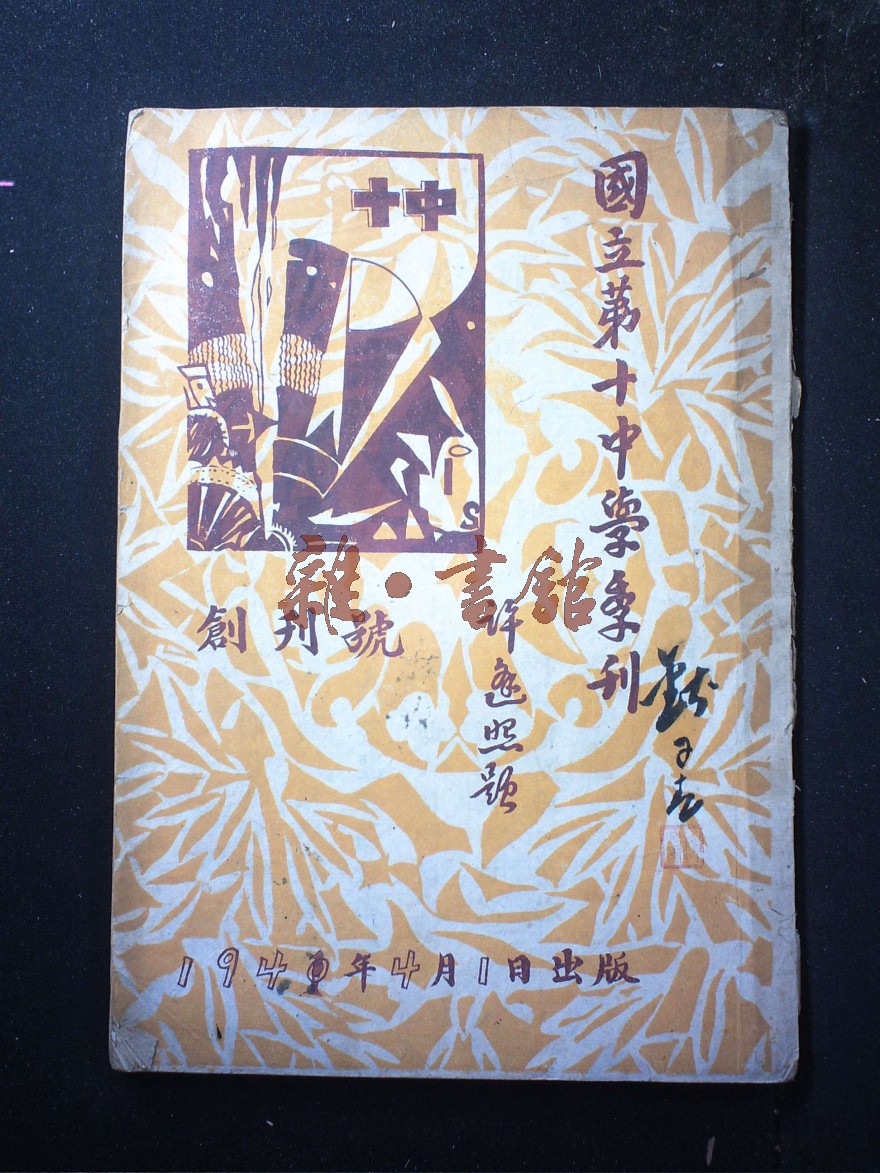 國立第十中學季刊
十中
創刊號
許逸照題
1940年4月1日出版
雜·書館
S